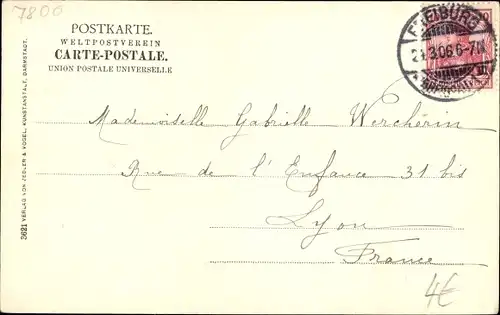 7800
POSTKARTE.
WELTPOSTVEREIN
CARTE-POSTALE.
UNION POSTALE UNIVERSELLE
FREIBURG
21.3.06 6-7N
3621 VERLAG VON ZEDLER & VOGEL, KUNSTANSTALT, DARMSTADT.
Mademoiselle Gabrielle Wercherin
Rue de l'Enfance 31 bis
Lyon
France
4€